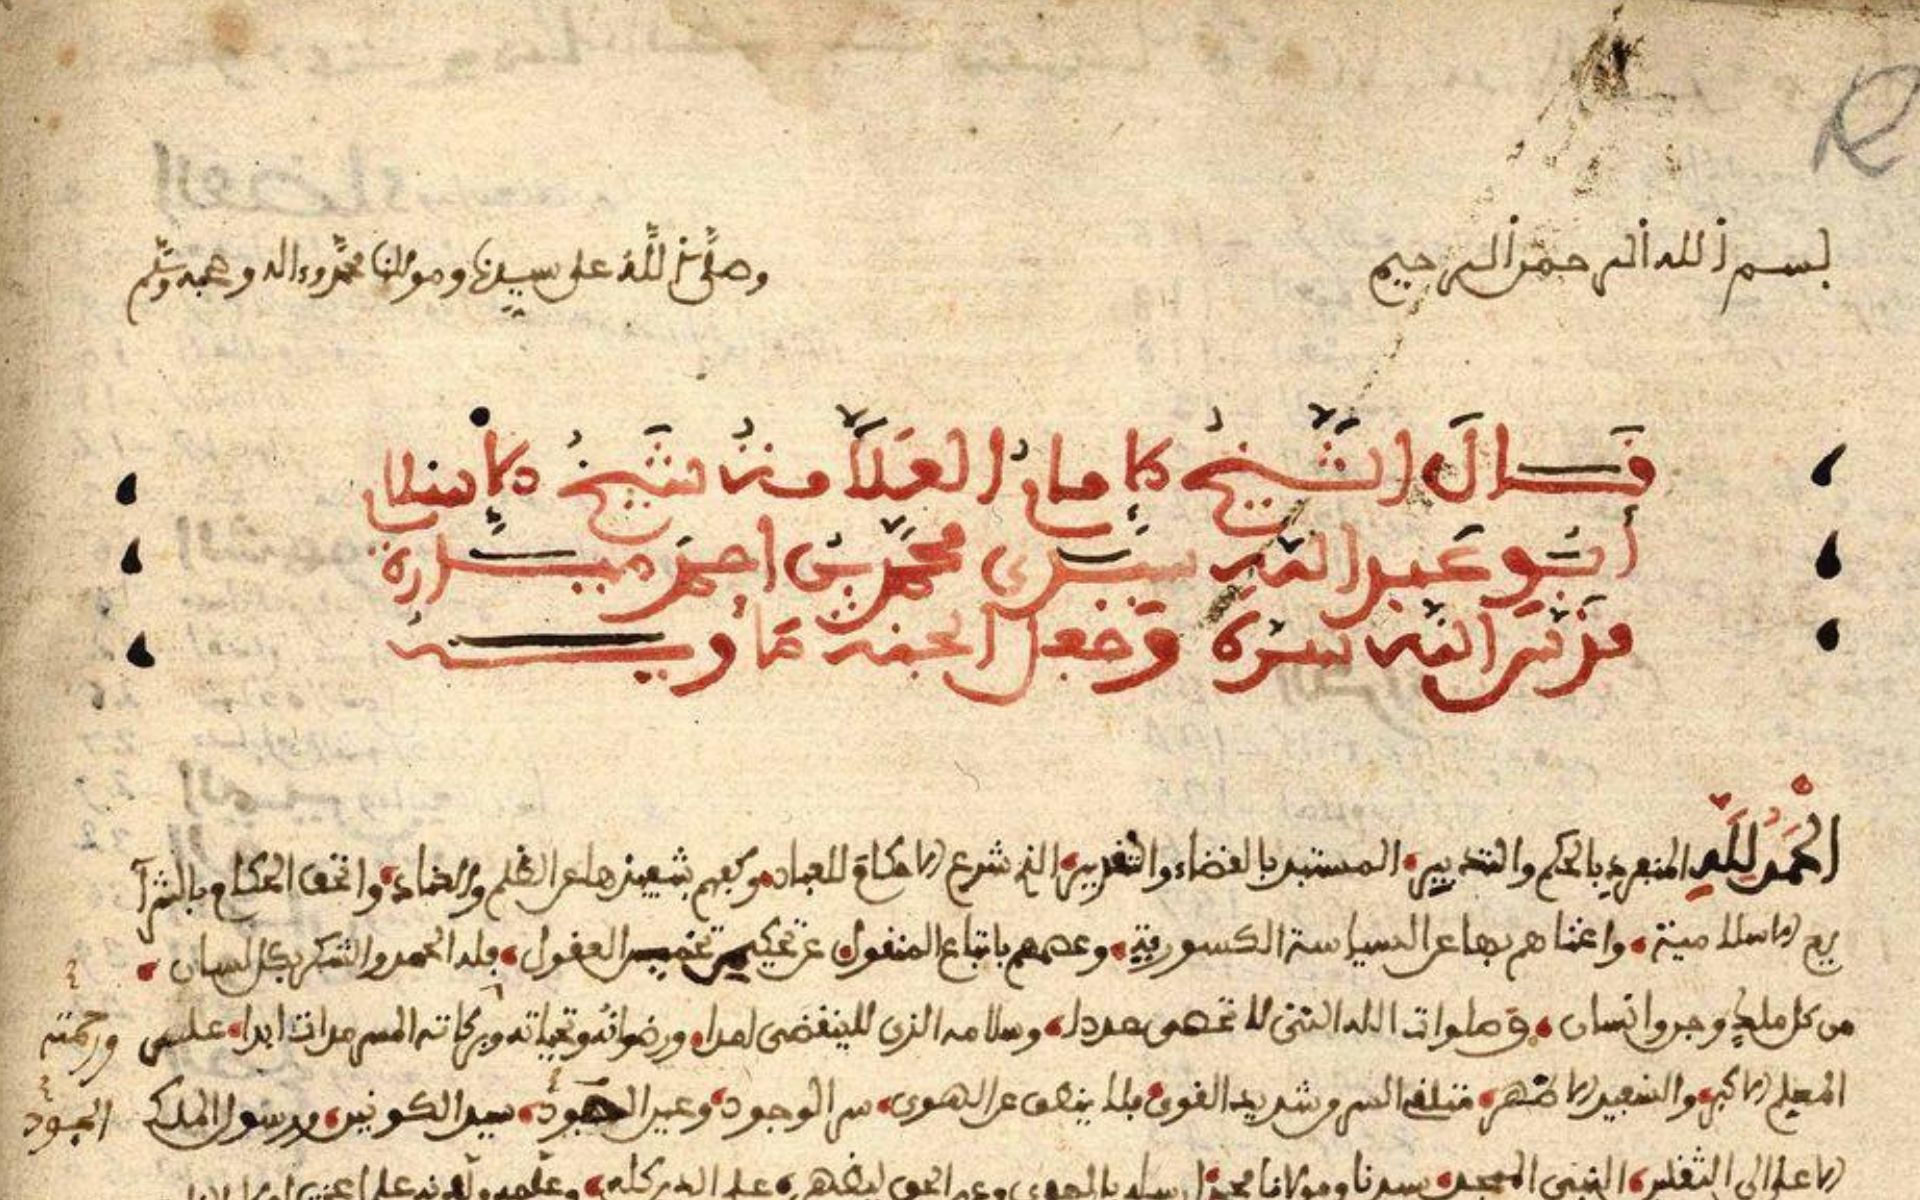 بسم الله الرحمن الرحيم
وصلى الله على سيدنا ومولانا محمد وءاله وصحبه وسلم
قال الشيخ الإمام العلامة شيخ الإسلام
أبو عبد الله سيدي محمد بن احمد ميارة
قدس الله سره وجعل الجنة مأويه
الحمد لله المنفرد بالحكم والتدبير المستبد بالقضاء والتقدير الذي شرع الأحكام للعباد وكفهم بتنفيذها عن الظلم والعناد واتحف الحكام بالشرآ
يع الإسلامية واغناهم بها عن السياسة الكسروية وعصمهم باتباع المنقول عن تحكيم العقول فله الحمد والشكر بكل لسان
من كل ملك وجن وانسان وصلوات الله التي لا تحصى عددا وسلامه الذي لا ينقضي امدا ورضوانه وتحياته وبركاته ابدا على
ورحمته
المعلم الأكبر والشفيع الأطهر السر وشديد القوى فلا ينطق عن الهوى سر الوجود وعبد سيد الكونين ورسول الملك
المعبود
الأعلى الى الثقلين النبي سيدنا ومولانا محمد ارسله بالهدى ودين الحق ليظهره على الدين كله